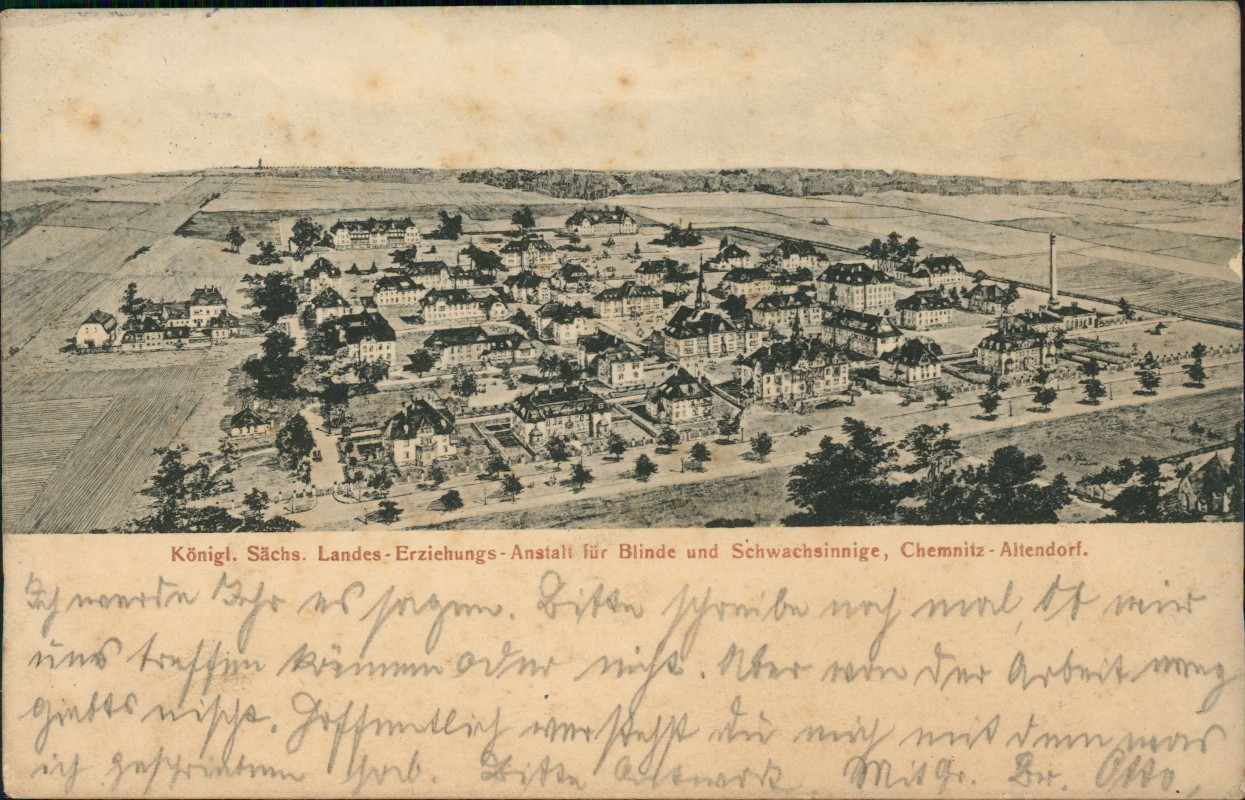 Königl. Sächs. Landes-Erziehungs-Anstalt für Blinde und Schwachsinnige, Chemnitz-Altendorf.
Ich werde Ihr es sagen. Bitte schreibe noch mal, ob wir
uns treffen können oder nicht. Aber von der Arbeit weg
giebts nischt. Hoffentlich verstehst du mich mit dem was
ich geschrieben hab. Bitte Antwort. Mit Gr. Br. Otto,